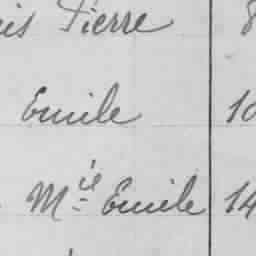 Pierre
Emile 10
Mie Emile 14